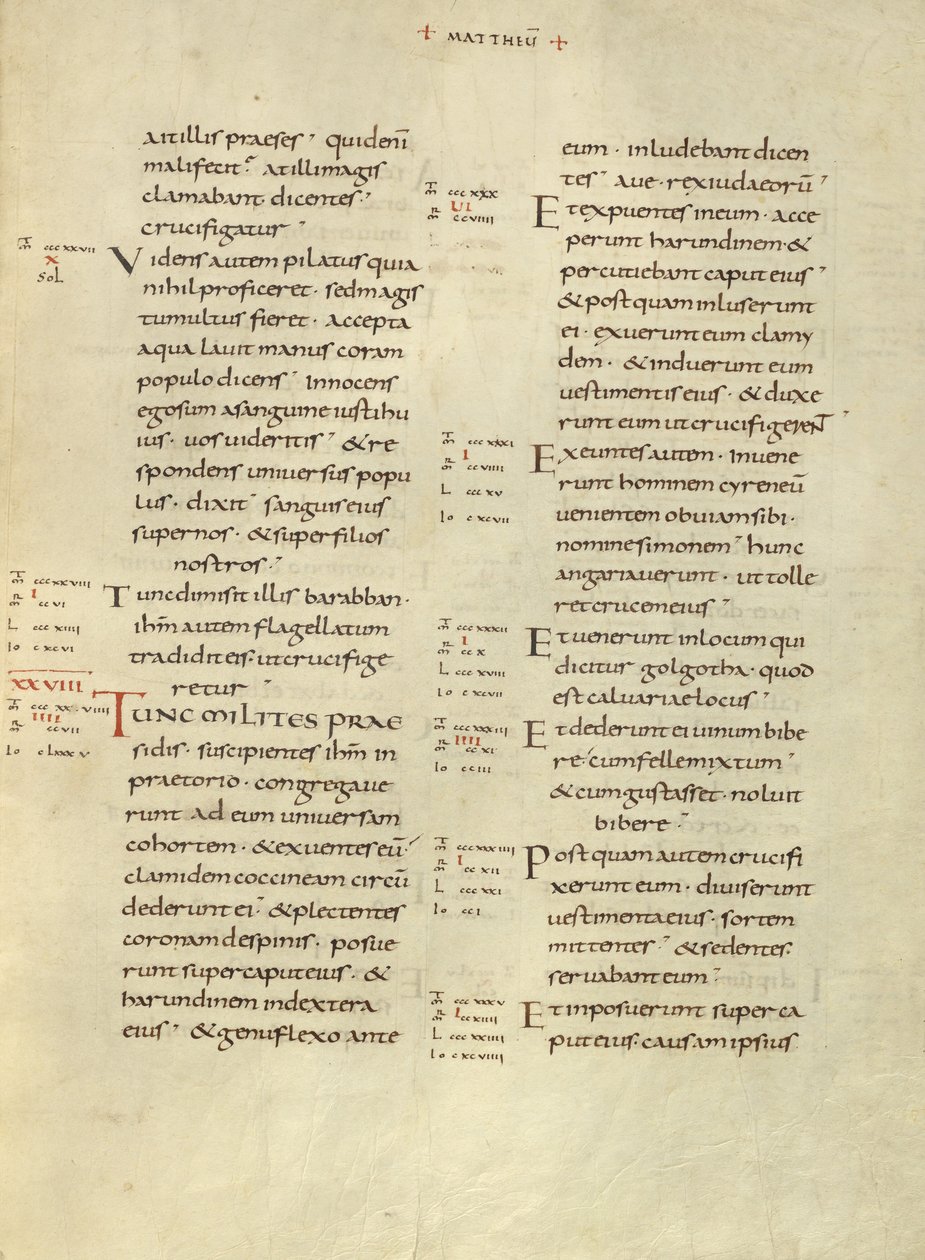 + MATTHEŪ +
ait illis praeses quid enī
mali fecit at illi magis
clamabant · dicentes
crucifigatur
m̄ ccc xxvii
x
Sol
Videns autem pilatus quia
nihil proficeret · sed magis
tumultus fieret · accepta
aqua lavit manus coram
populo dicens Innocens
ego sum a sanguine iusti hu
ius · vos videritis & re
spondens universus popu
lus · dixit sanguis eius
super nos · & super filios
nostros
m̄ ccc xx viii
I
m̄ cc vi
L ccc xiiii
Io c xc vi
Tunc dimisit illis barabban ·
ihm̄ autem flagellatum
tradidit eis · ut crucifige
retur
XXVIII
m̄ ccc xx viiii
IIII
cc vii
Io c lxxx v
TUNC MILITES PRAE
sidis · suscipientes ihm̄ in
praetorio · congregave
runt Ad eum universam
cohortem · & exuentes eū
clamidem coccineam circū
dederunt ei & plectentes
coronam de spinis · posue
runt super caput eius · &
harundinem in dextera
eius & genu flexo ante
eum · inludebant dicen
tes ave · rex iudaeorū
m̄ ccc xxx
VI
m̄ cc viiii
Et expuentes in eum · acce
perunt harundinem · &
percutiebant caput eius
& postquam inluserunt
ei · exuerunt eum clamy
dem · & induerunt eum
vestimentis eius · & duxe
runt eum ut crucifigerent
m̄ ccc xxxi
I
m̄ cc viiii
L ccc xv
Io c xc vii
Exeuntes autem · invene
runt hominem cyreneū
venientem obviam sibi ·
nomine simonem hunc
angariaverunt · ut tolle
ret crucem eius
m̄ ccc xxxii
I
m̄ cc x
L ccc xviii
Io c xc vii
Et venerunt in locum qui
dicitur golgotha · quod
est calvariae locus
m̄ ccc xxx iii
IIII
m̄ cc xi
Io cc iii
Et dederunt ei vinum bibe
re cum felle mixtum
& cum gustasset · noluit
bibere
m̄ ccc xxx iiii
I
cc xii
L ccc xxi
Io cc i
Postquam autem crucifi
xerunt eum · diviserunt
vestimenta eius · sortem
mittentes & sedentes ·
servabant eum
m̄ ccc xxx v
I
m̄ cc xiiii
L ccc xx iiii
Io c xc viiii
Et inposuerunt super ca
put eius · causam ipsius